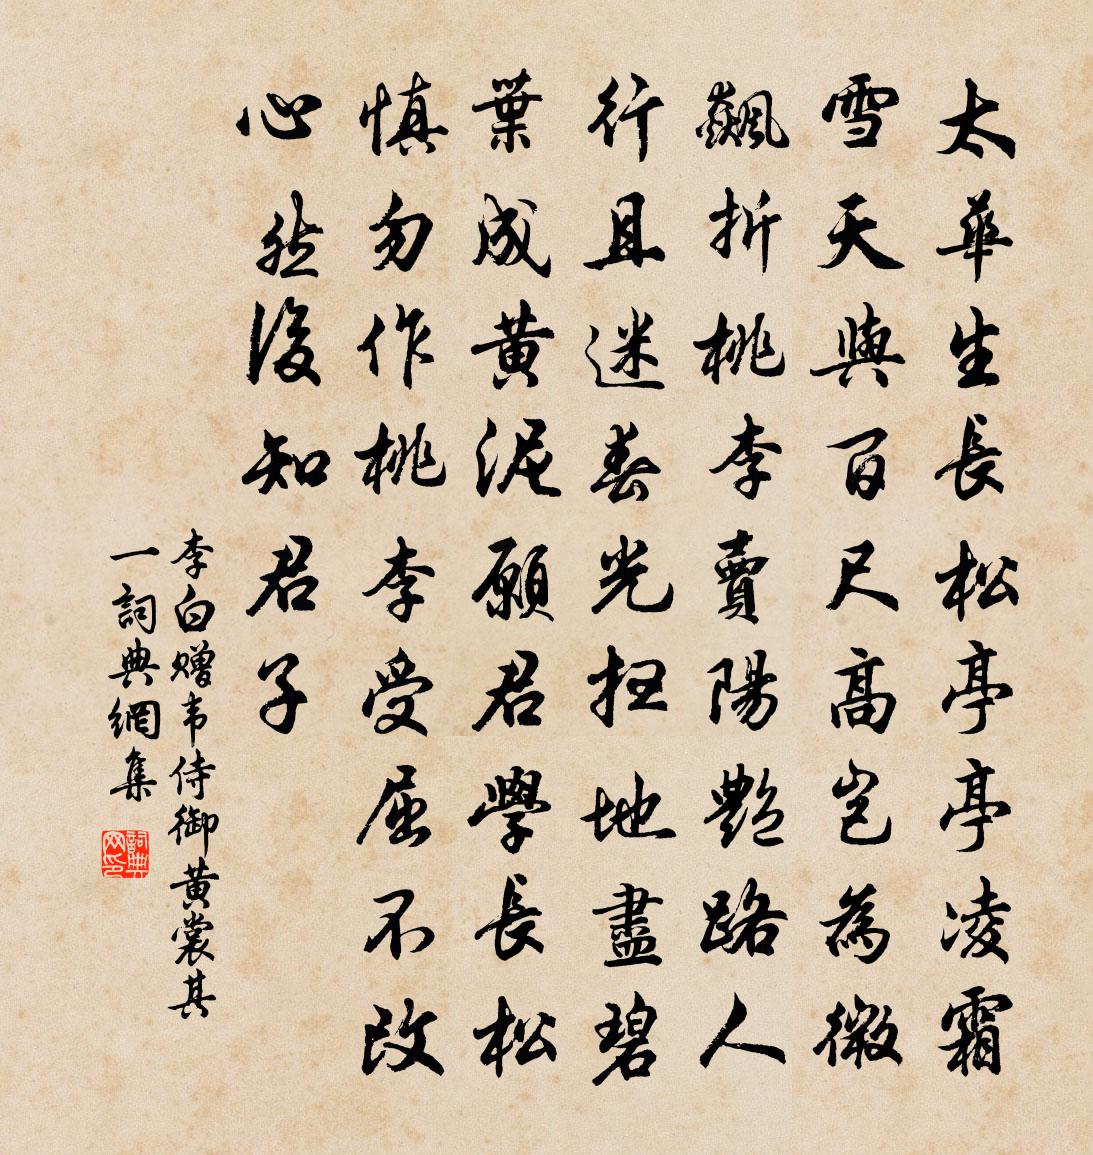 太華生長松亭亭凌霜
雪天與百尺高豈為微
飆折桃李賣陽艷路人
行且迷春光扫地盡碧
葉成黃泥願君學長松
慎勿作桃李受屈不改
心然後知君子
李白赠韦侍御黄裳其
一詞典網集
詞典网印